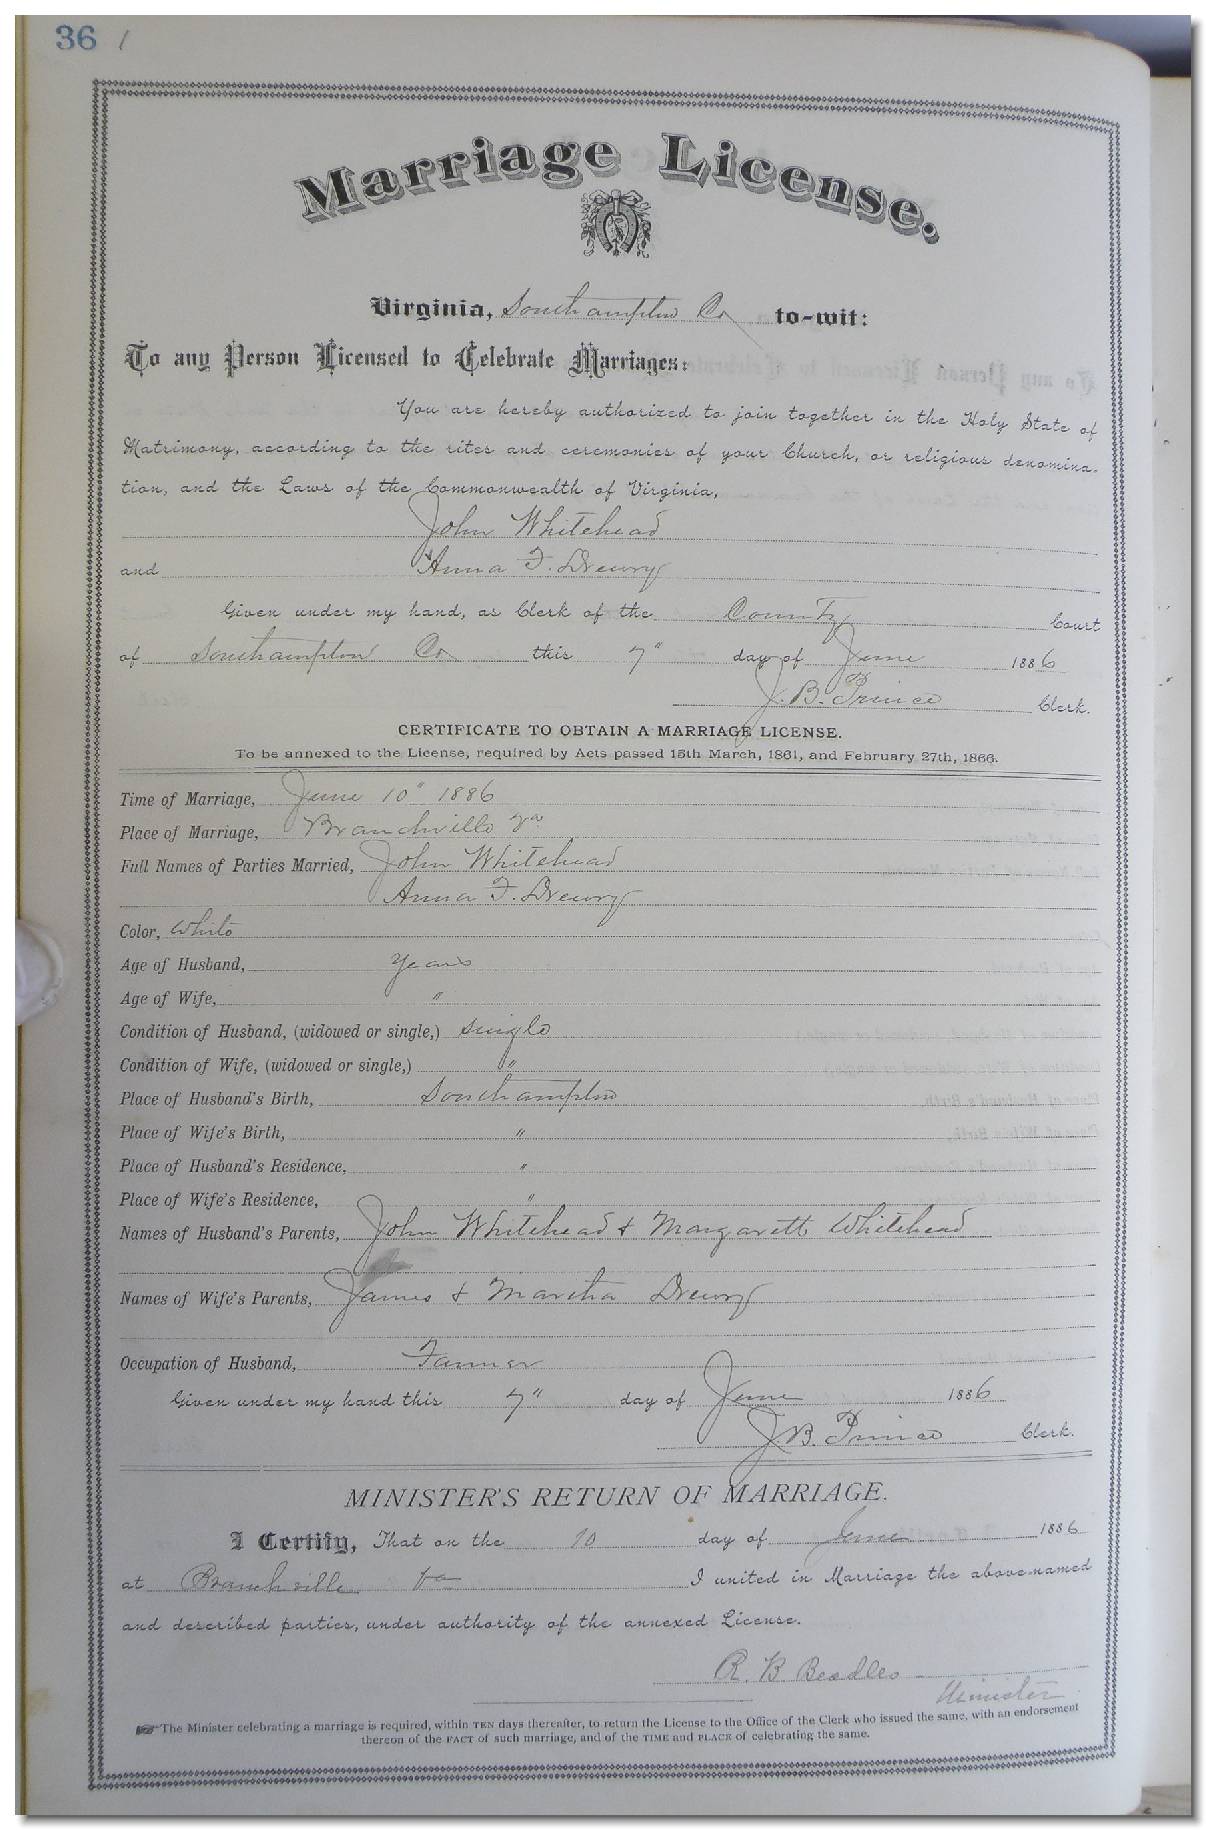 36 1
Marriage License.
Virginia, Southampton Co to-wit:
To any Person Licensed to Celebrate Marriages:
You are hereby authorized to join together in the Holy State of
Matrimony, according to the rites and ceremonies of your Church, or religious denomina-
tion, and the Laws of the Commonwealth of Virginia,
John Whitehead
and Anna F. Drewry
Given under my hand, as Clerk of the County Court
of Southampton Co this 7" day of June 1886
J. B. Prince Clerk.
CERTIFICATE TO OBTAIN A MARRIAGE LICENSE.
To be annexed to the License, required by Acts passed 15th March, 1861, and February 27th, 1866.
Time of Marriage, June 10" 1886
Place of Marriage, Branchville Va
Full Names of Parties Married, John Whitehead
Anna F. Drewry
Color, White
Age of Husband, years
Age of Wife, "
Condition of Husband, (widowed or single,) single
Condition of Wife, (widowed or single,) "
Place of Husband's Birth, Southampton
Place of Wife's Birth, "
Place of Husband's Residence, "
Place of Wife's Residence, "
Names of Husband's Parents, John Whitehead & Margarett Whitehead
Names of Wife's Parents, James & Martha Drewry
Occupation of Husband, Farmer
Given under my hand this 7" day of June 1886
J. B. Prince Clerk.
MINISTER'S RETURN OF MARRIAGE.
I Certify, That on the 10 day of June 1886
at Branchville Va I united in Marriage the above-named
and described parties, under authority of the annexed License.
R. B Beadles
Minister
☞ The Minister celebrating a marriage is required, within TEN days thereafter, to return the License to the Office of the Clerk who issued the same, with an endorsement
thereon of the FACT of such marriage, and of the TIME and PLACE of celebrating the same.